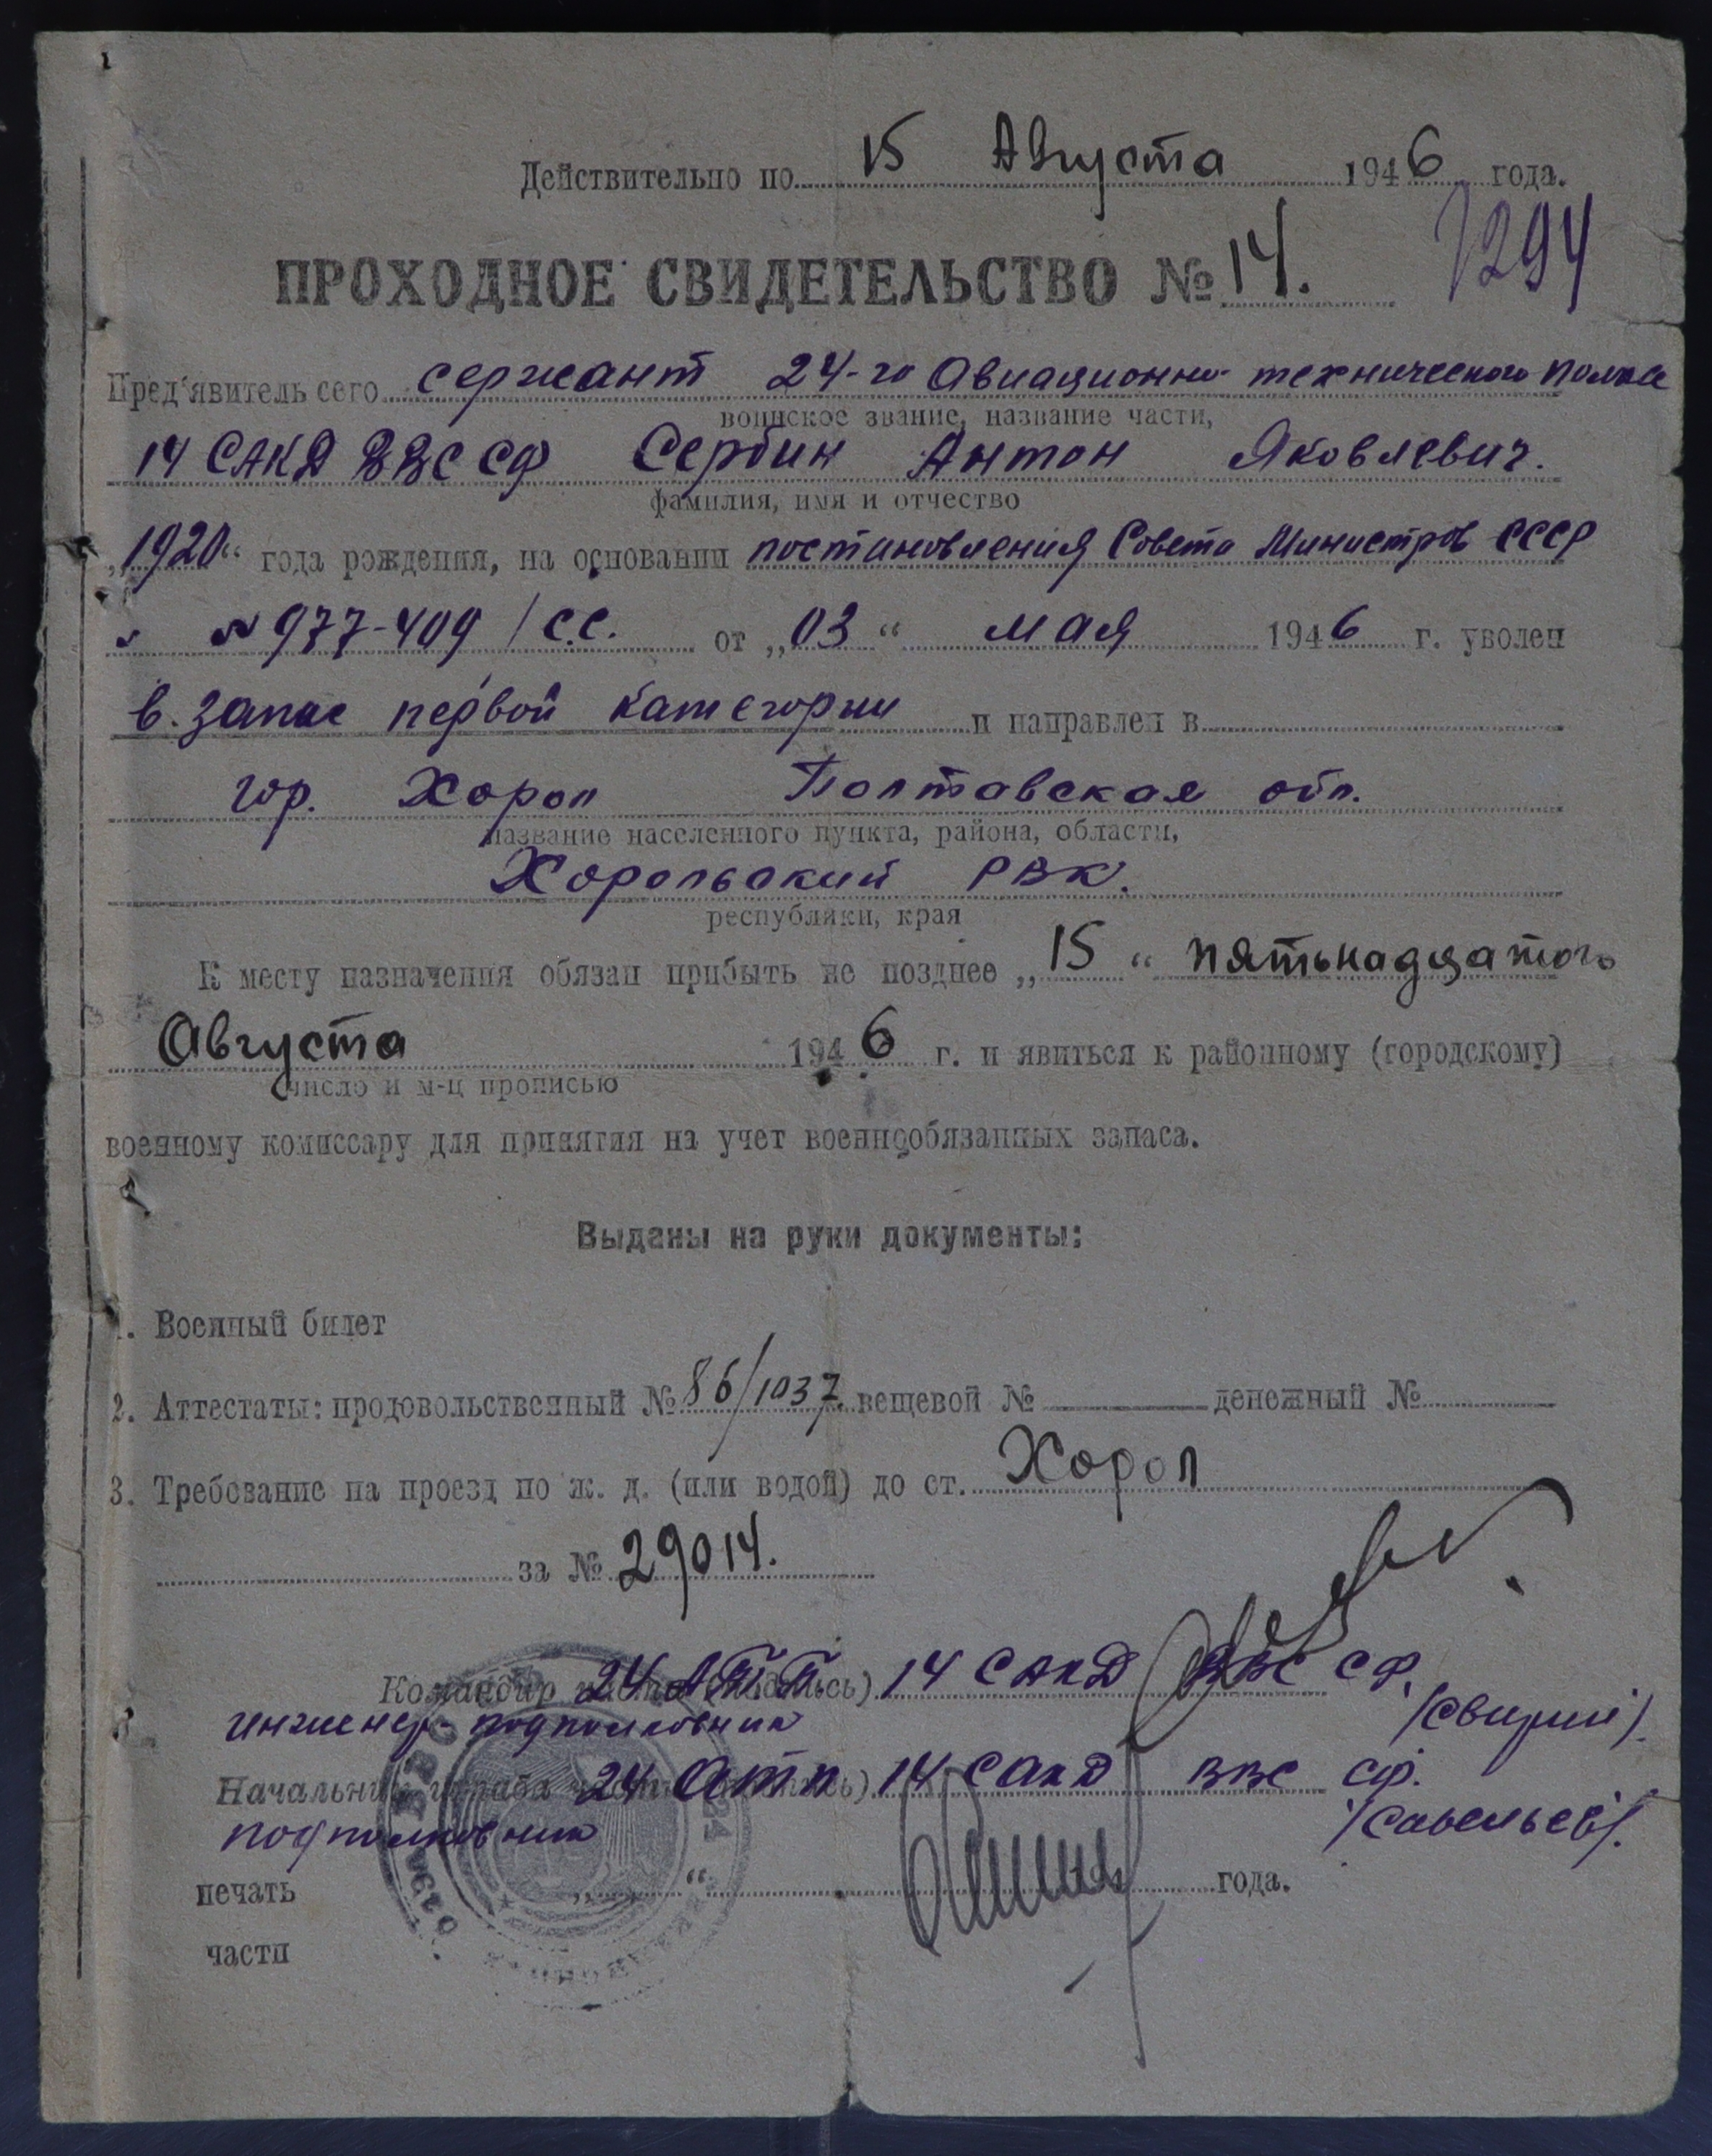 Действительно по 15 Августа 1946 года.
ПРОХОДНОЕ СВИДЕТЕЛЬСТВО № 14.
1294
Пред'явитель сего сержант 24-го Авиационно-технического полка
воинское звание, название части,
14 САКД ВВС СФ Сербин Антон Яковлевич.
фамилия, имя и отчество
„1920“ года рождения, на основании постановления Совета Министров СССР
№977-409/с.с. от „03“ мая 1946 г. уволен
в запас первой категории и направлен в
гор. Хорол Полтавская обл.
название населенного пункта, района, области,
Хорольский РВК.
республики, края
К месту назначения обязан прибыть не позднее „15“ пятьнадцатого
Августа 1946 г. и явиться к районному (городскому)
число и м-ц прописью
военному комиссару для принятия на учет военнообязанных запаса.
Выданы на руки документы:
1. Военный билет
2. Аттестаты: продовольственный № 86/1037 вещевой № денежный №
3. Требование на проезд по ж. д. (или водой) до ст. Хорол
за № 29014.
Командир части (подпись) 24 АТП 14 САКД ВВС СФ.
инженер-подполковник /Свирий/.
Начальник штаба части (подпись) 24 АТП 14 САКД ВВС СФ.
подполковник /Савельев/.
печать „ “ года.
части